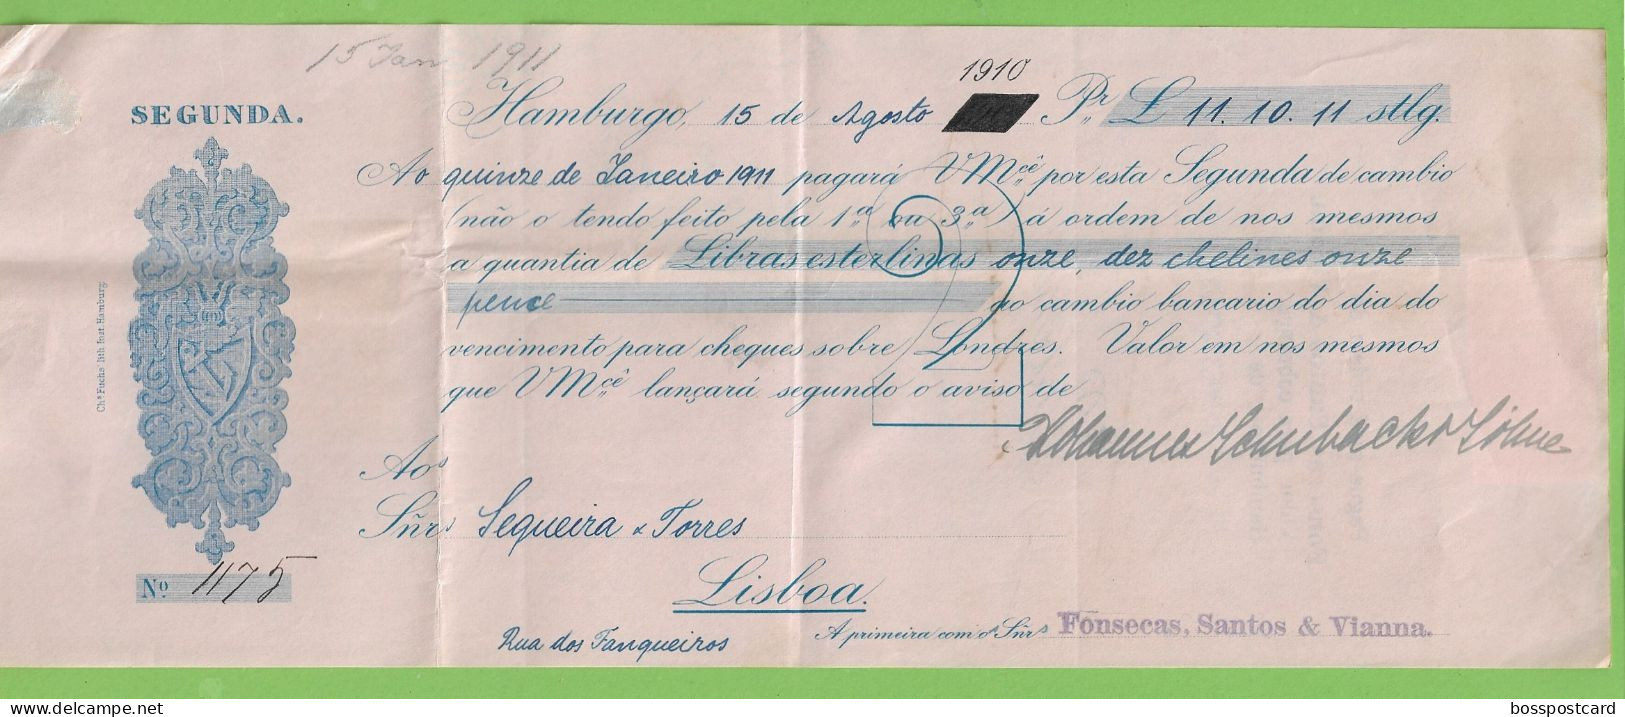 15 Jan 1911
SEGUNDA.
1910
Hamburgo, 15 de Agosto Pr £ 11. 10. 11 stlg.
Ao quinze de Janeiro 1911 pagará VMcê por esta Segunda de cambio
(não o tendo feito pela 1ª ou 3ª) á ordem de nos mesmos
a quantia de Libras esterlinas onze, dez chelines onze
pence ao cambio bancario do dia do
vencimento para cheques sobre Londres. Valor em nos mesmos
que VMcê lançará segundo o aviso de
Johannes Schubacks Söhne
Aos
Sñrs Sequeira & Torres
Lisboa.
Rua dos Fanqueiros
A primeira com os Sñrs Fonsecas, Santos & Vianna.
No. 1175
Chs Fuchs lith Inst Hamburg.
bosspostcard